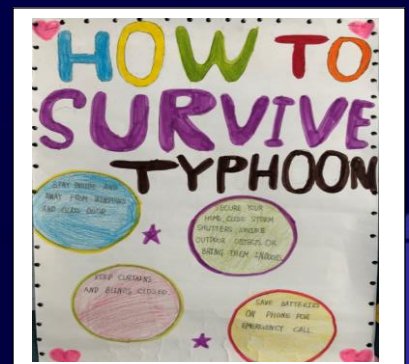 HOW TO
SURVIVE
TYPHOON
STAY INSIDE AND
AWAY FROM WINDOWS
AND GLASS DOOR
SECURE YOUR
HOME CLOSE STORM
SHUTTERS SECURE
OUTDOOR OBJECTS OR
BRING THEM INDOORS
KEEP CURTAINS
AND BLINDS CLOSED
SAVE BATTERIES
ON PHONE FOR
EMERGENCY CALL